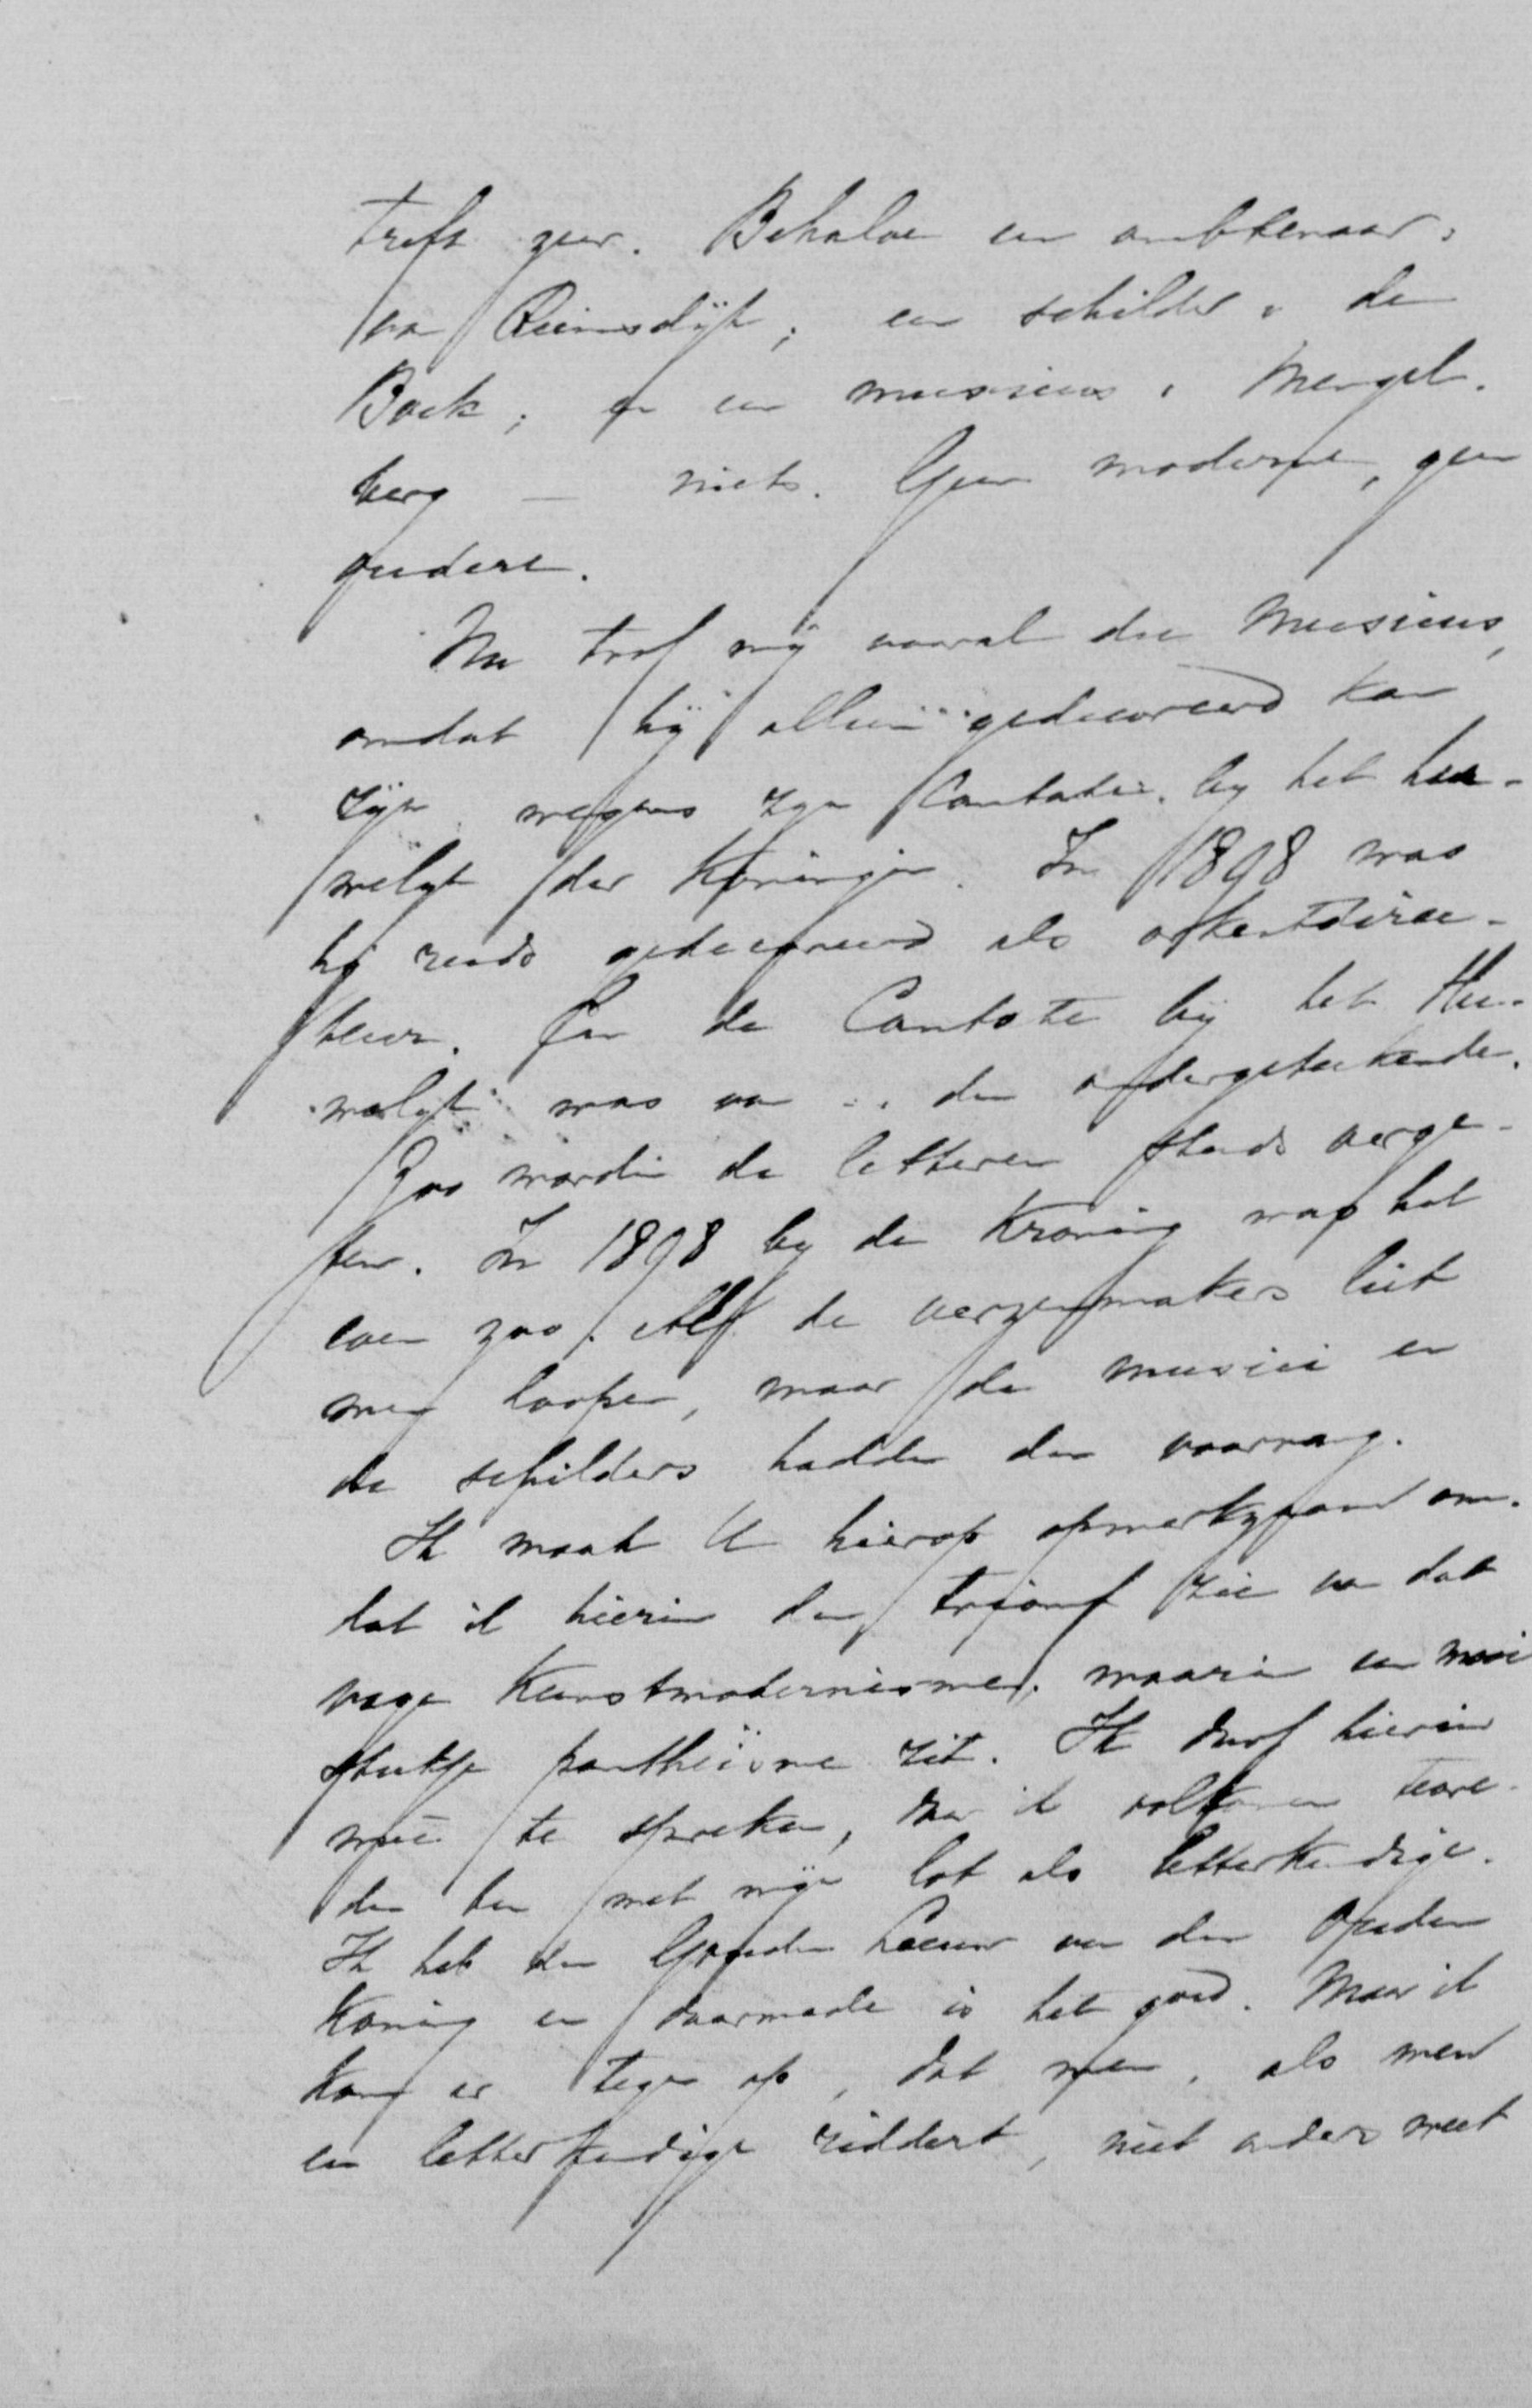 treft zeer. Behalve een ambtenaar:
van Riemsdijk; een schilder: de
Bock; en een musicus: Mengel-
berg — niets. Geen moderne, geen
oudere.
Nu trof mij vooral die Musicus,
omdat hij alleen gedecoreerd kan
zijn wegens zijn Cantate bij het hu-
welijk der Koningin. In 1898 was
hij reeds gedecoreerd als orkestdirec-
teur. En de Cantate bij het Hu-
welijk was van den ondergeteekende.
Zoo worden de letteren steeds verge-
ten. In 1898 bij de Kroning was het
even zoo. de verzenmakers liet
men loopen, maar de musici en
de schilders hadden den voorrang.
Ik maak U hierop opmerkzaam om-
dat ik hierin den triomf zie van dat
vage Kunstmodernisme, waarin een mooi
stukje pantheïsme zit. Ik durf hierin
vrij te spreken, daar ik volkomen tevre-
den ben met mijn lot als letterkundige.
Ik heb den Gouden Leeuw van den Ouden
Koning en daarmede is het goed. Maar ik
kom er tegen op, dat men, als men
een letterkundige riddert, niet anders weet